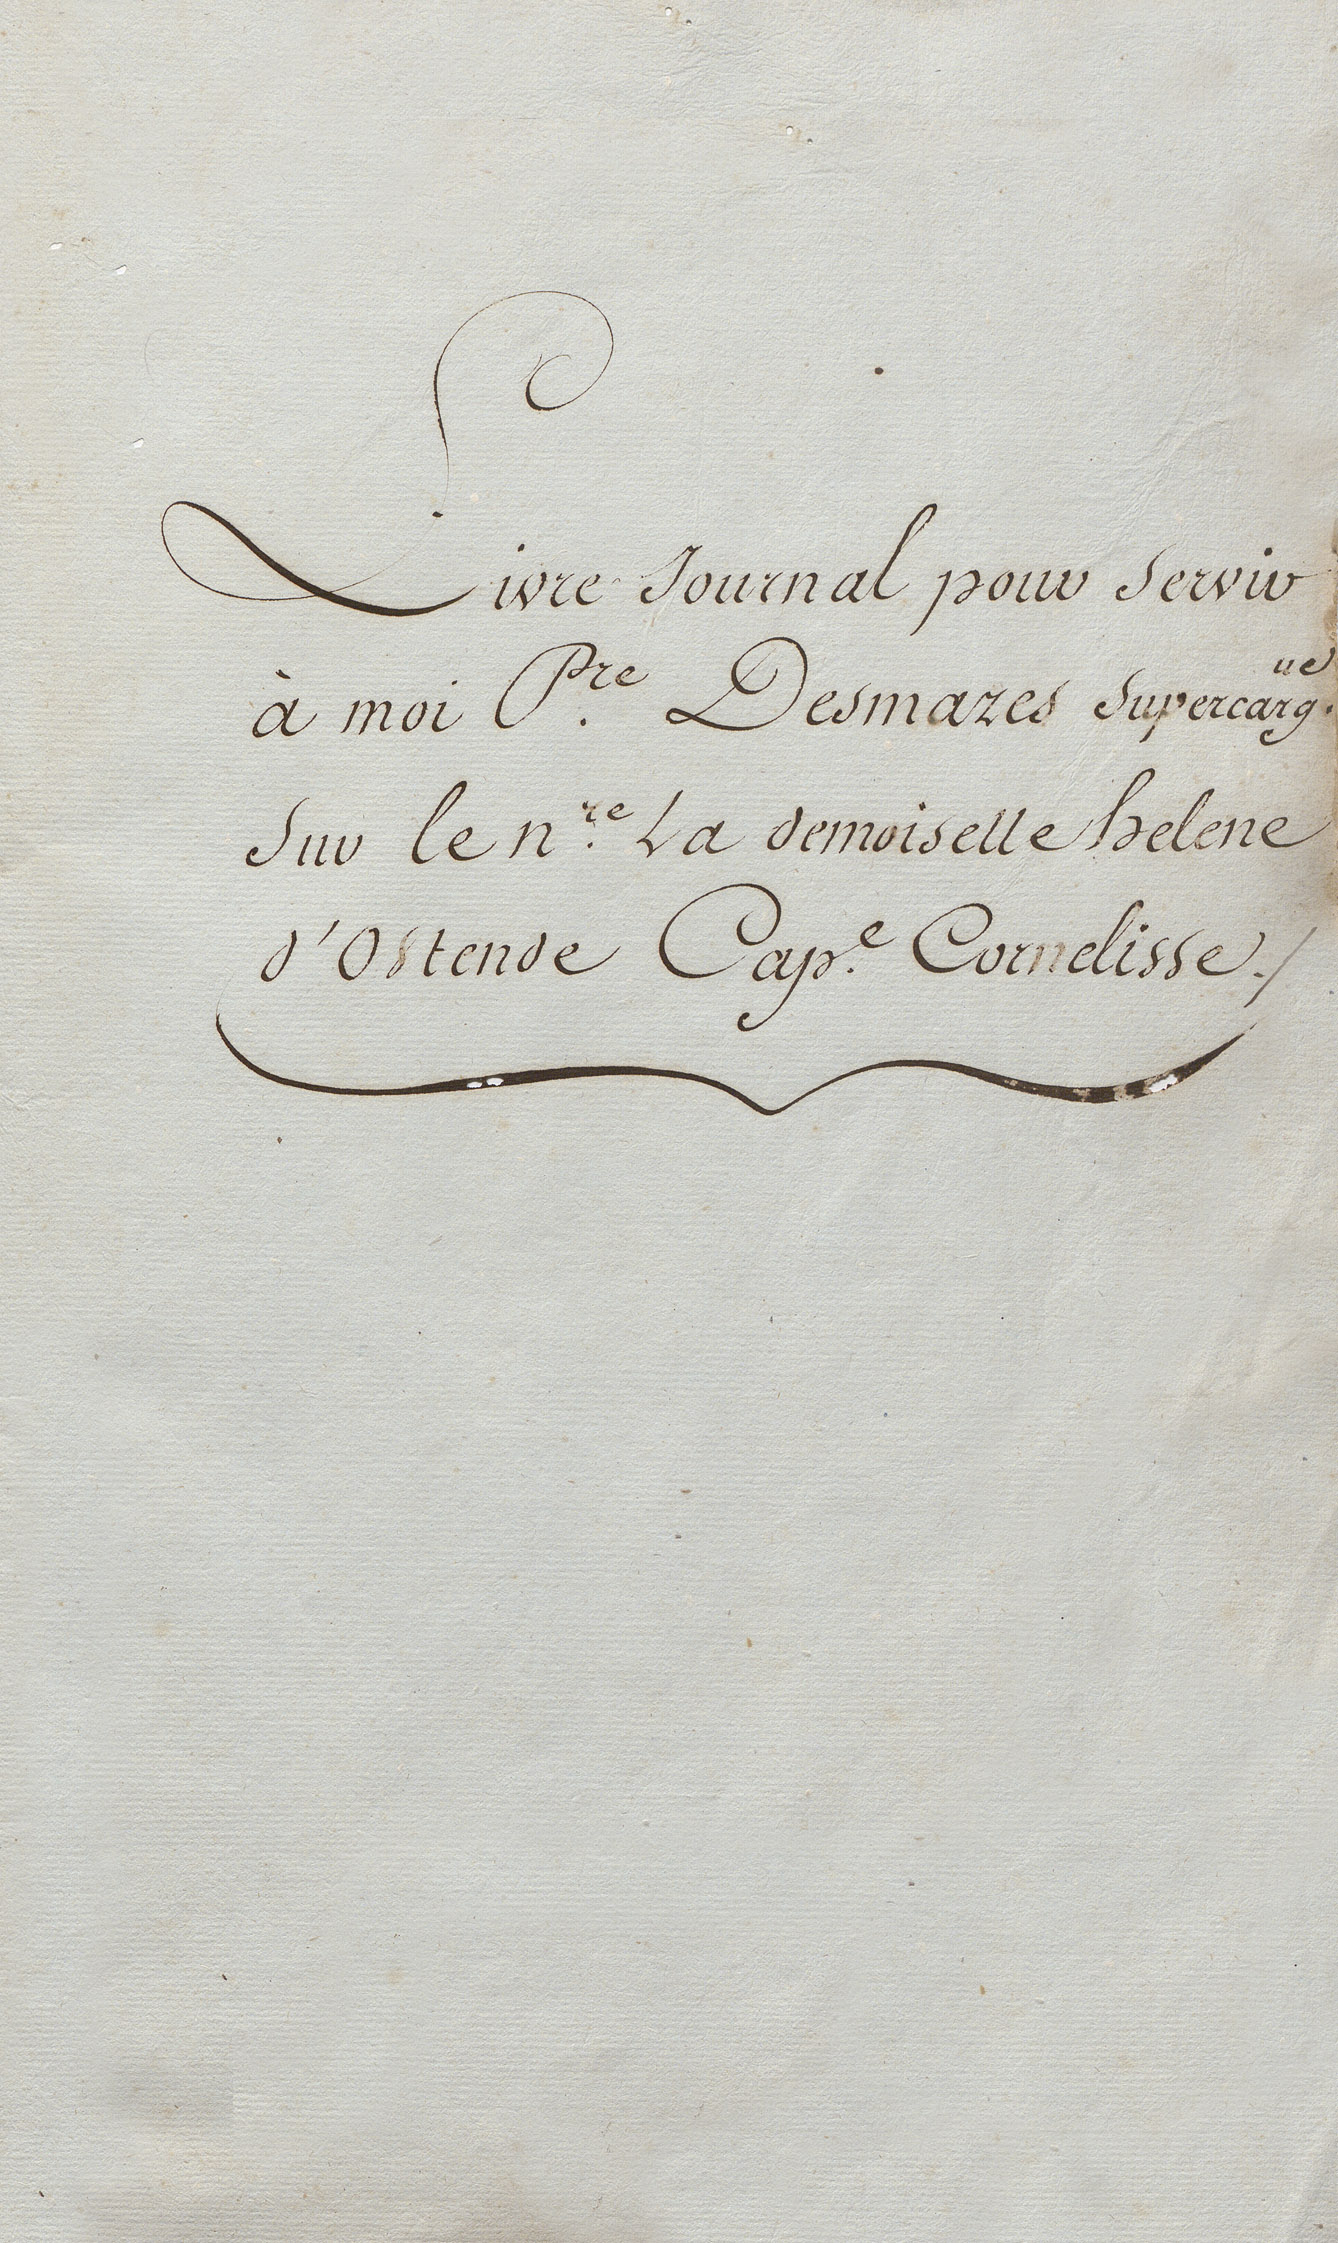 Livre Journal pour Servir
à moi P.re Desmazes Supercarg.ue
Sur le n.re La demoiselle helene
d'Ostende Cap.e Cornelisse./